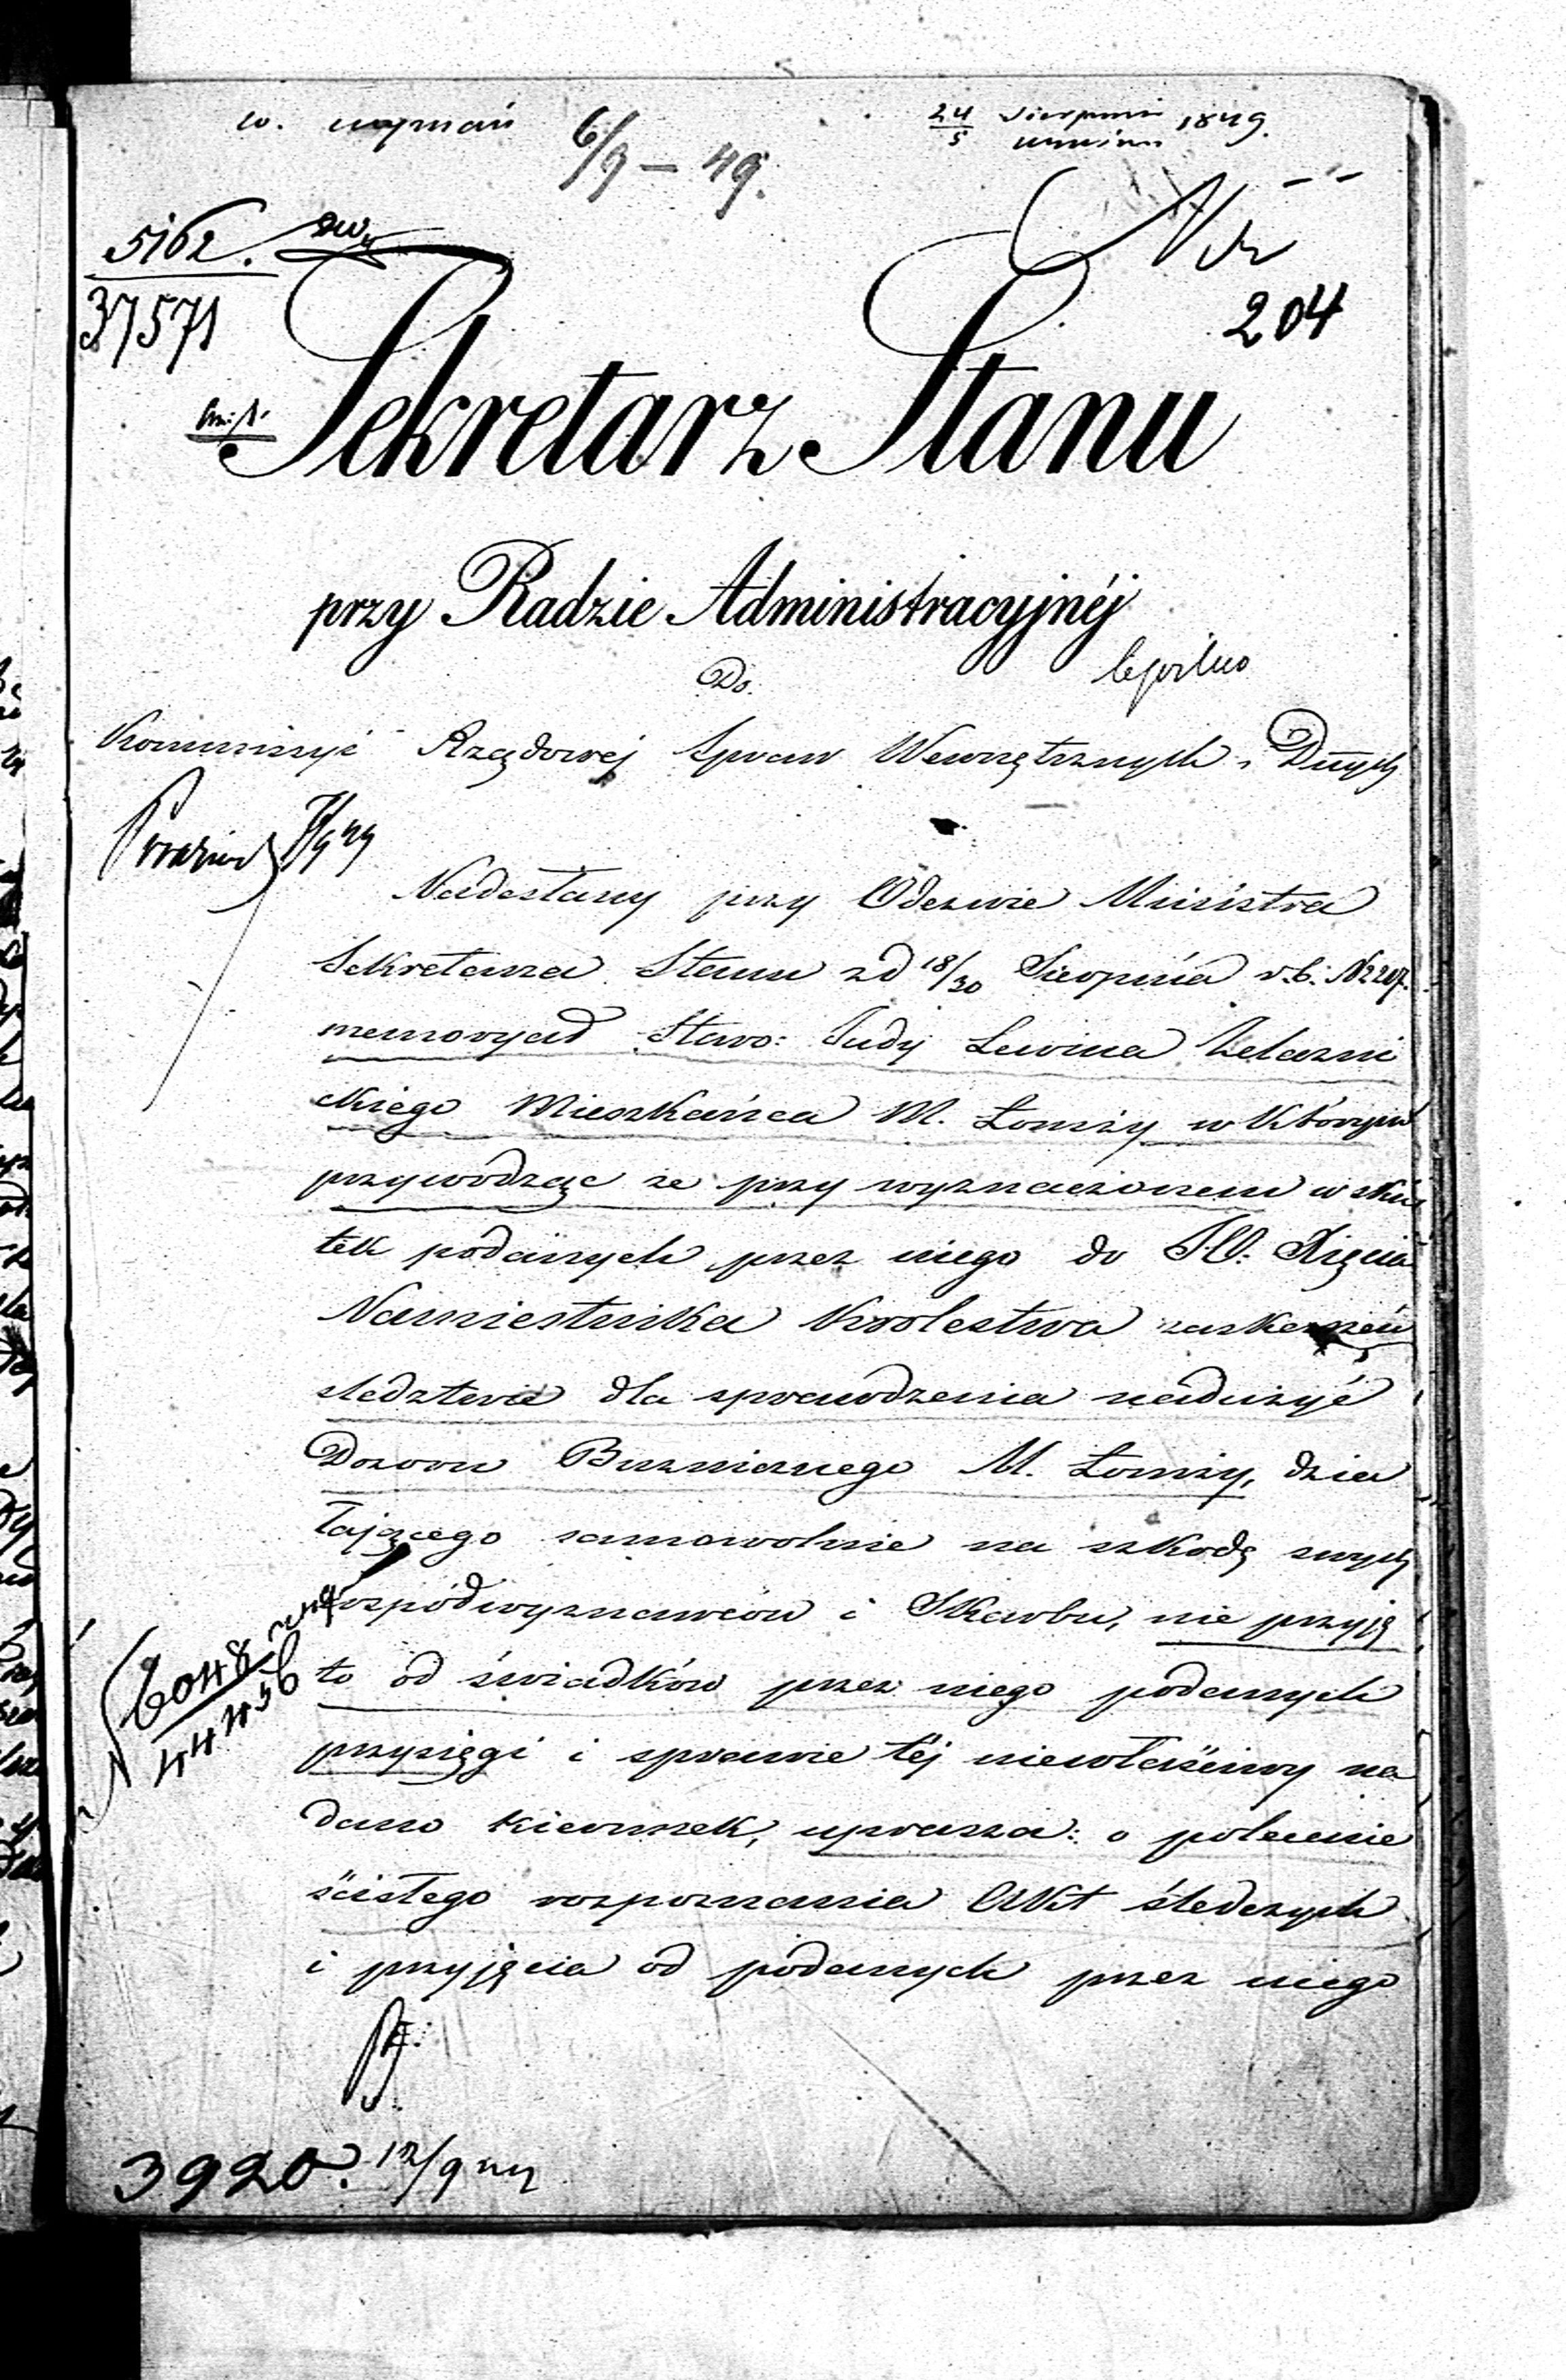 w.
6/9 – 49.
24/5 Sierpnia Września 1849.
5162.
37571
204
Sekretarz Stanu
przy Radzie Administracyjnéj
Do
Kommissyi Rządowej Spraw Wewnętrznych i Dnych
Nadesłany przy Odezwie Ministra
Sekretarza Stanu z d 18/30 Sierpnia r. b. N 2207.
memoryał Staro: Judy Lewina Żelaźni
ckiego Mieszkańca M. Łomży w którym
przywodząc ze przy wyznaczonem w sku
tek podanych przez niego do JO. Xięcia
Namiestnika Krolestwa zaskarzeń
sledztwie dla sprawdzenia nadużyć
Dozoru Bużniczego M. Łomży, dzia
łającego samowolnie na szkodę swych
wspódwyznawców i Skarbu, nie przyję
to od świadków przez niego podanych
przysięgi i sprawie téj niewłaściwy na
dano kierunek, uprasza: o polecenie
ścisłego rozpoznania Akt śledczych
i przyjęcia od podanych przez niego
6048
44456
3920. 12/9